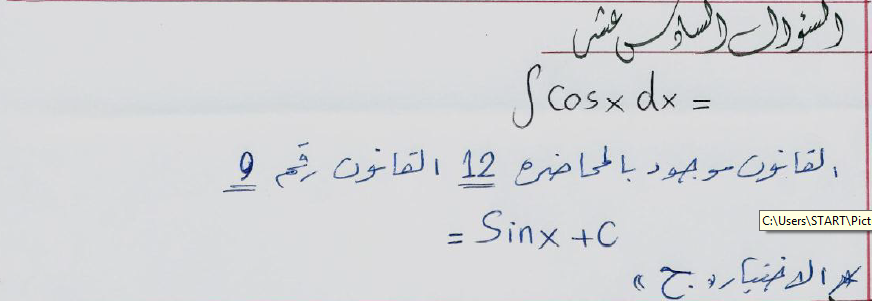 السؤال السادس عشر
∫ cosx dx =
القانون موجود بالمحاضره 12 القانون رقم 9
= Sinx + C
C:\Users\START\Pict
* الاختيار "ج"